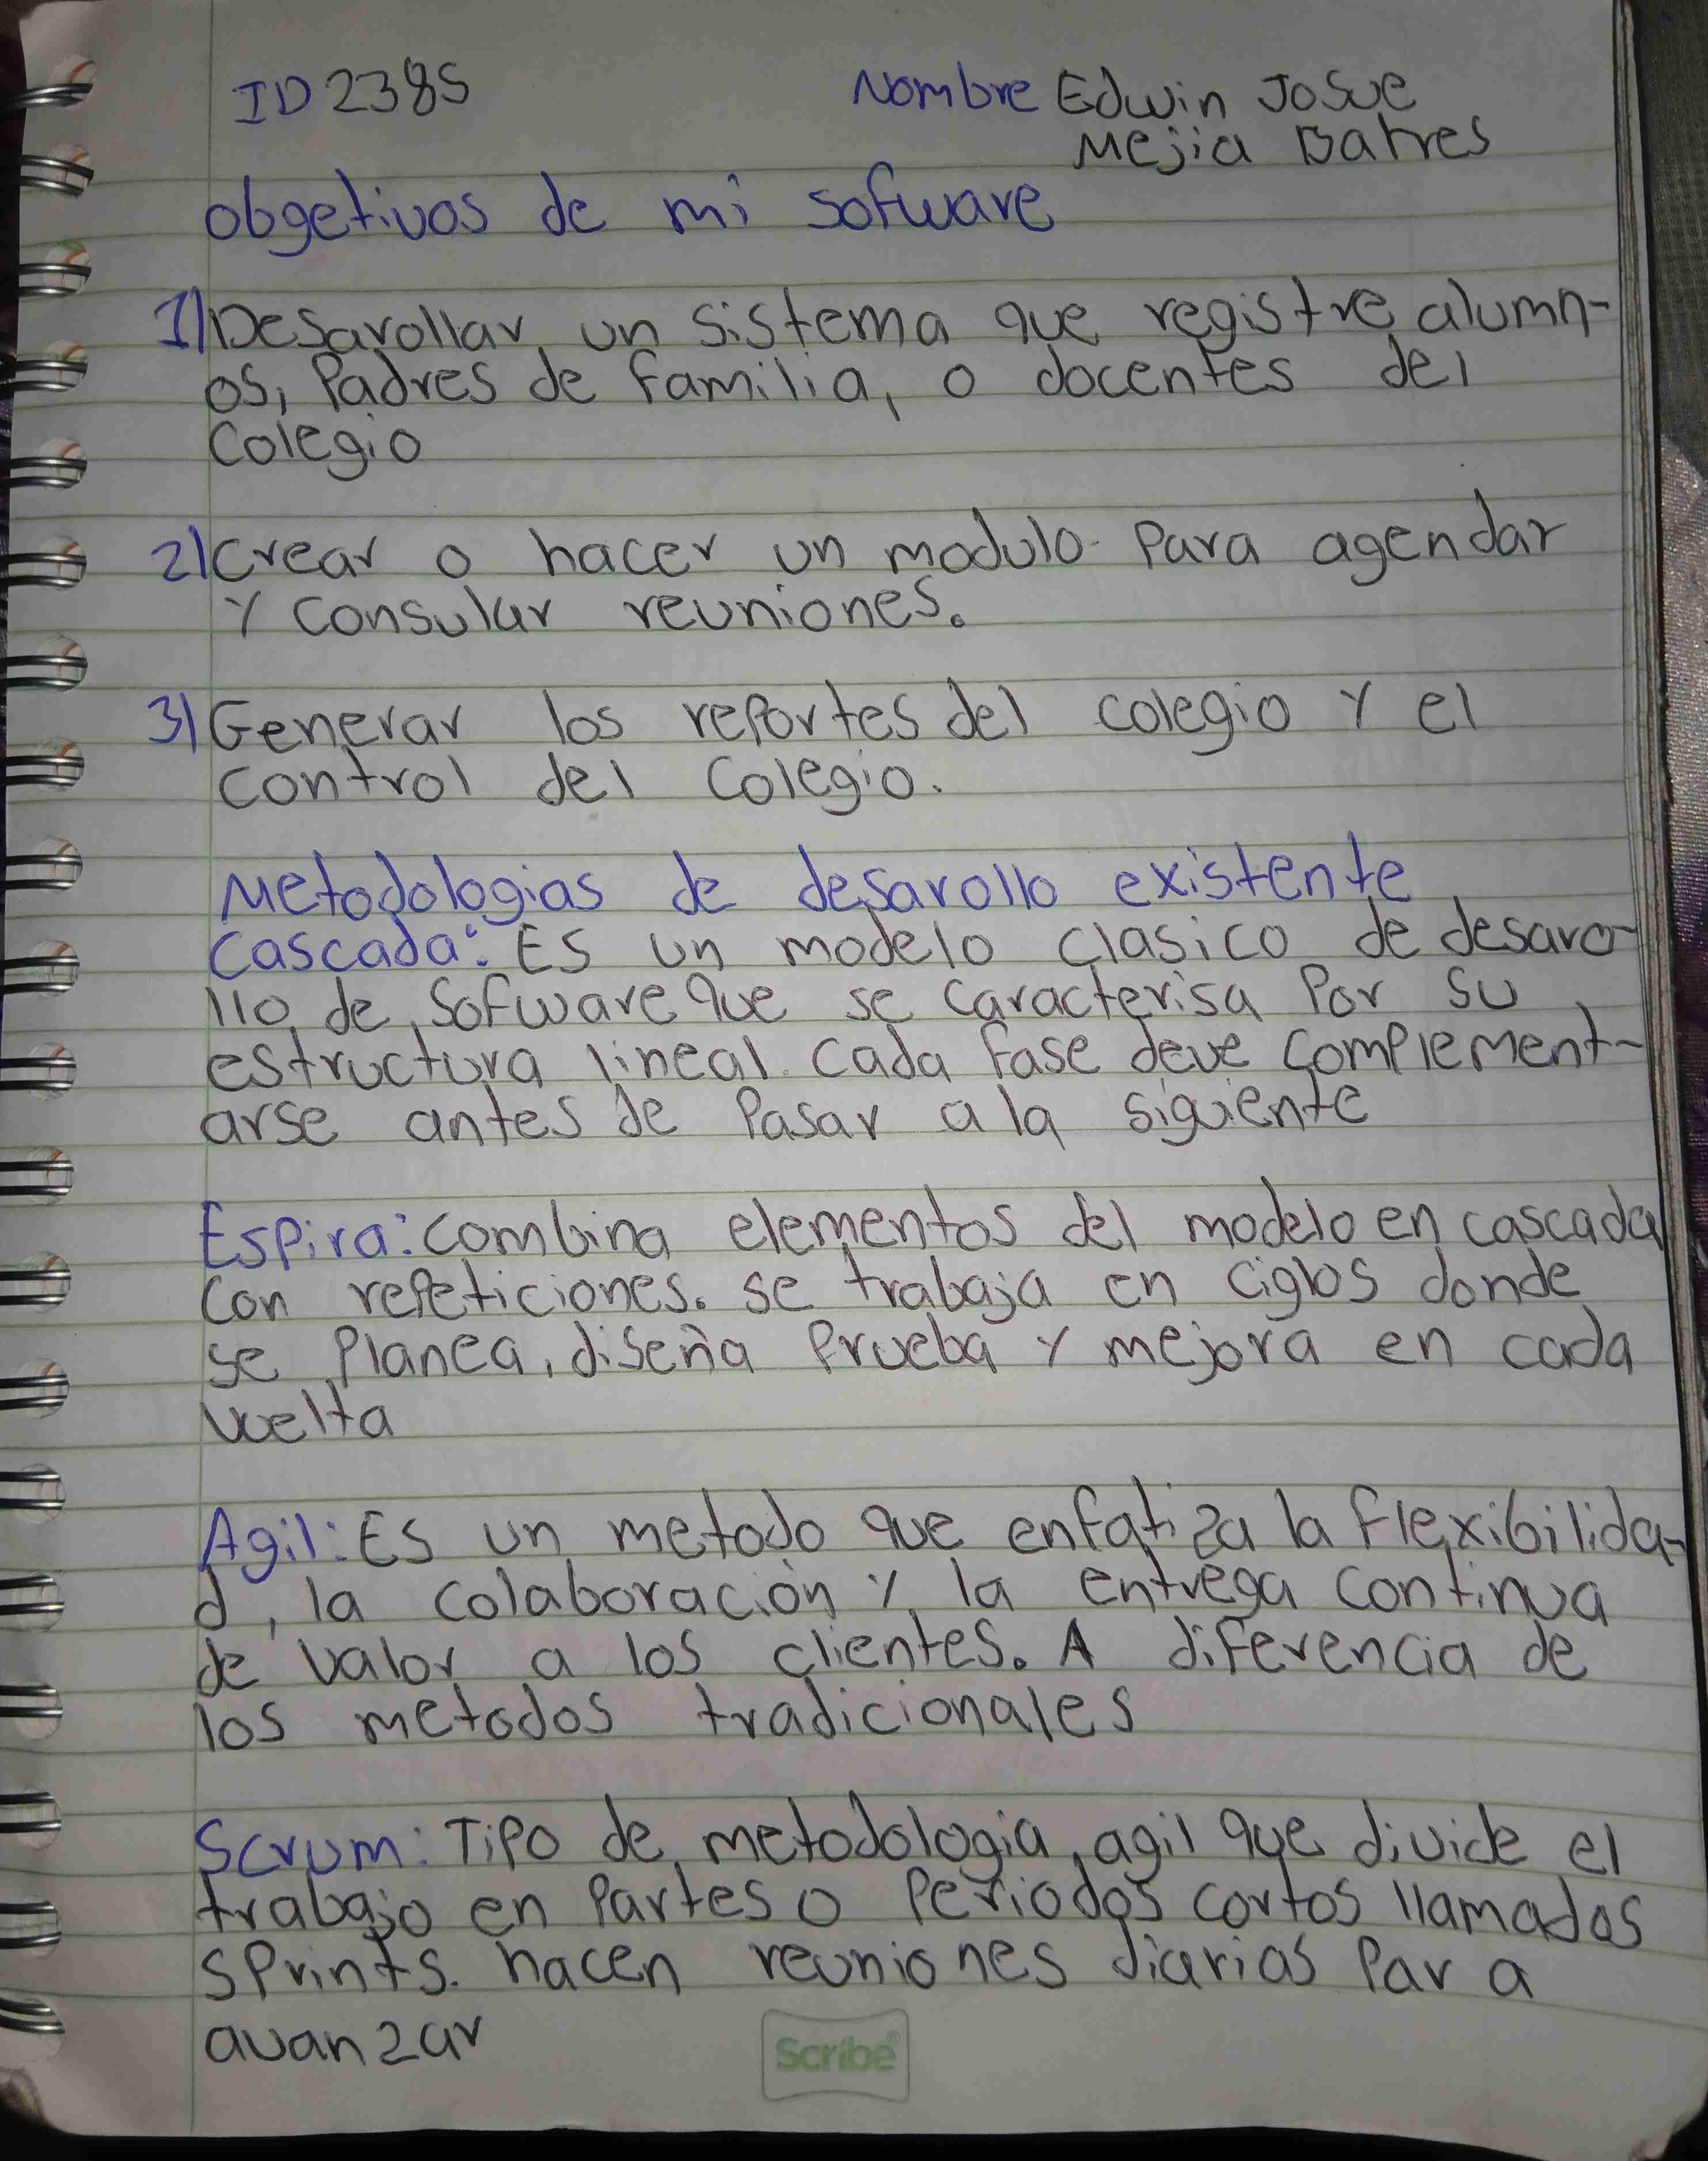 ID 2385 Nombre Edwin Josue
Mejia Batres
obgetivos de mi sofware
1) Desarollar un sistema que registre alumn-
os, Padres de familia, o docentes del
Colegio
2) Crear o hacer un modulo para agendar
Y consular reuniones.
3) Generar los reportes del colegio Y el
control del Colegio.
Metodologias de desarollo existente
Cascada: Es un modelo clasico de desaro-
llo de Sofware que se caracterisa Por su
estructura lineal. Cada fase deve complement-
arse antes de Pasar a la siguiente
Espira: combina elementos del modelo en cascada
Con repeticiones. se trabaja en ciglos donde
se Planea, diseña Prueba Y mejora en cada
vuelta
Agil: Es un metodo que enfatiza la flexibilida-
d, la colaboración y la entrega continua
de valor a los clientes. A diferencia de
los metodos tradicionales
Scrum: Tipo de metodologia agil que divide el
trabajo en Partes o Periodos cortos llamados
SPrints. hacen reuniones diarias Para
avanzar
Scribe®